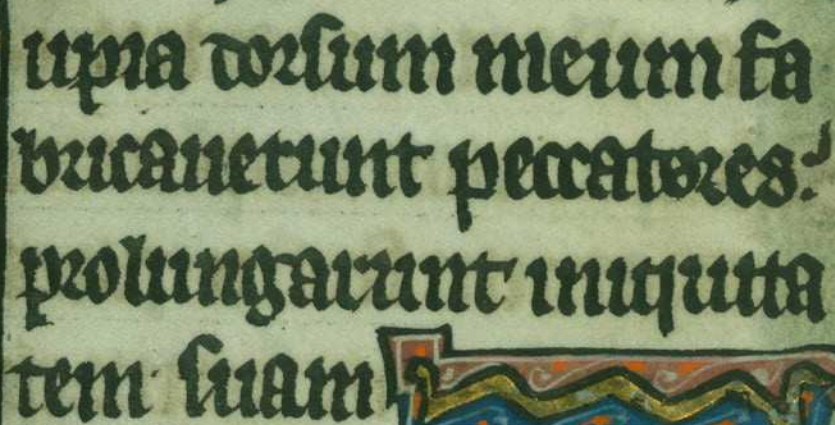 upra dorsum meum fa
bricauerunt peccatores:
prolungarunt iniquita
tem suam